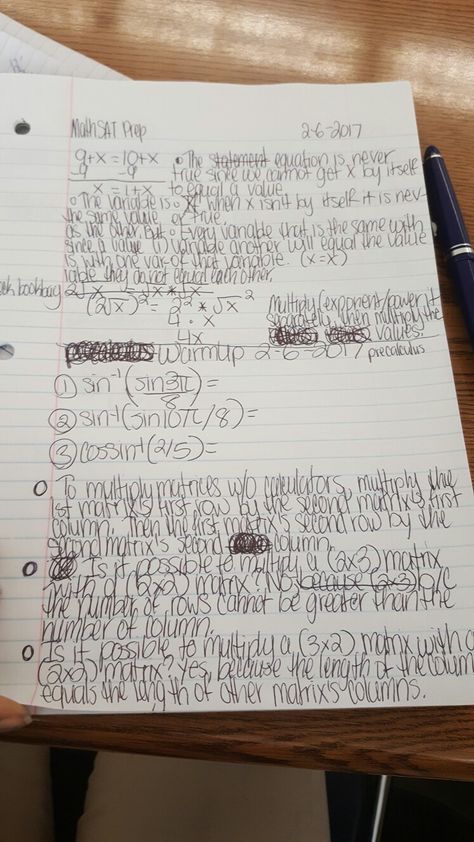 Math SAT Prep 2-6-2017
9+x = 10+x • The statement equation is never
-9 -9 true since we cannot get x by itself
x = 1+x to equal a value.
• The variable is • when x isn't by itself it is nev-
the same value er true
as the other, but • Every variable that is the same with
since a value (1) variable another will equal the value
is with one var- of that variable. (x=x)
iable they do not equal each other.
(2√x)² = 2² * √x²
4 · x
4x
Multiply exponent/power it
separately, then multiply the
values.
Warmup 2-6-2017 precalculus
① sin⁻¹(sin3π/8)=
② sin⁻¹(sin10π/8)=
③ cossin⁻¹(2/5)=
To multiply matrices w/o calculators, multiply the
1st matrix's first row by the second matrix's first
column. Then the first matrix's second row by the
second matrix's second column.
Is it possible to multiply a (2x3) matrix
with a (2x2) matrix? No because (2x3) b/c
the number of rows cannot be greater than the
number of column.
Is it possible to multiply a (3x2) matrix with a
(2x2) matrix? Yes, because the length of the column
equals the length of other matrix's columns.